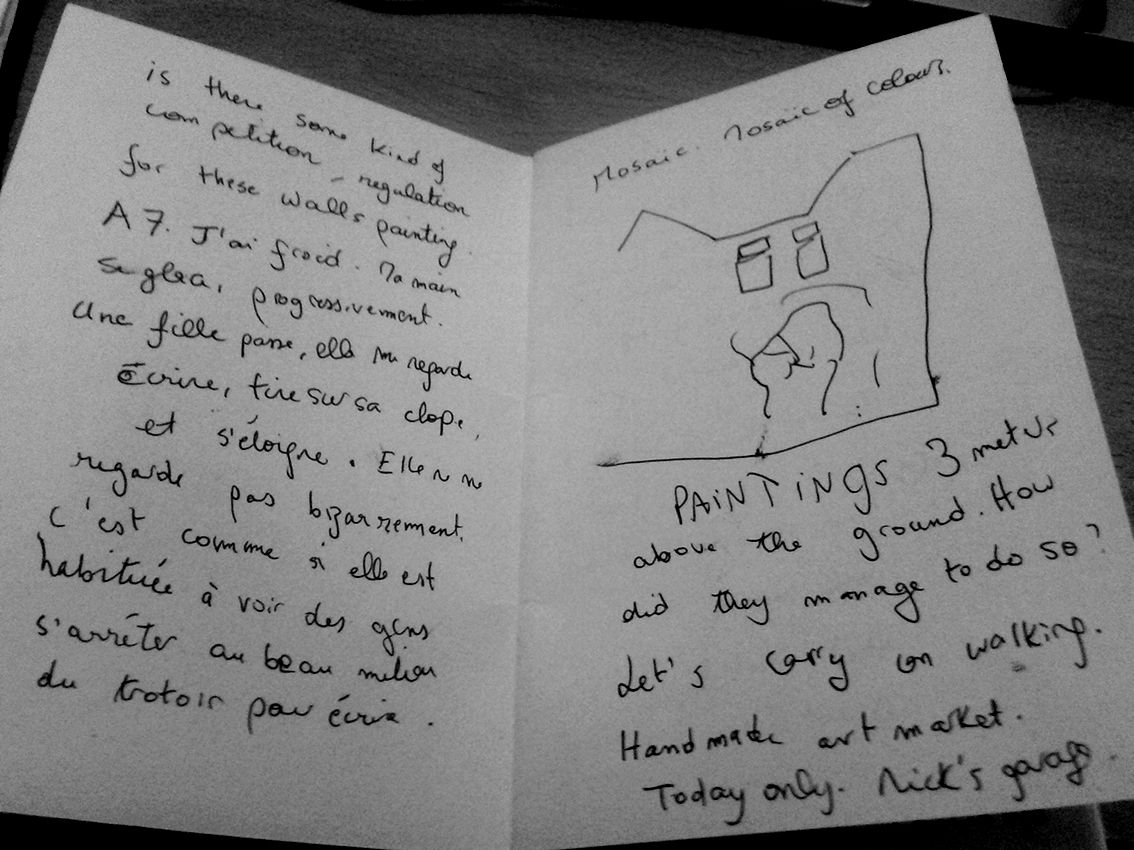 is there some kind of
competition - regulation
for these walls painting.
A 7. J'ai froid. Ma main
se glca, progressivement.
Une fille passe, elle me regarde
écrire, tire sur sa clope,
et s'éloigne. Elle n me
regarde pas bizarrement,
c'est comme si elle est
habituée à voir des gens
s'arrêter au beau milieu
du trotoir pour écrire.
Mosaic. Mosaic of colours.
PAINTINGS 3 meters
above the ground. How
did they manage to do so?
Let's carry on walking.
Handmade art market.
Today only. Nick's garage.